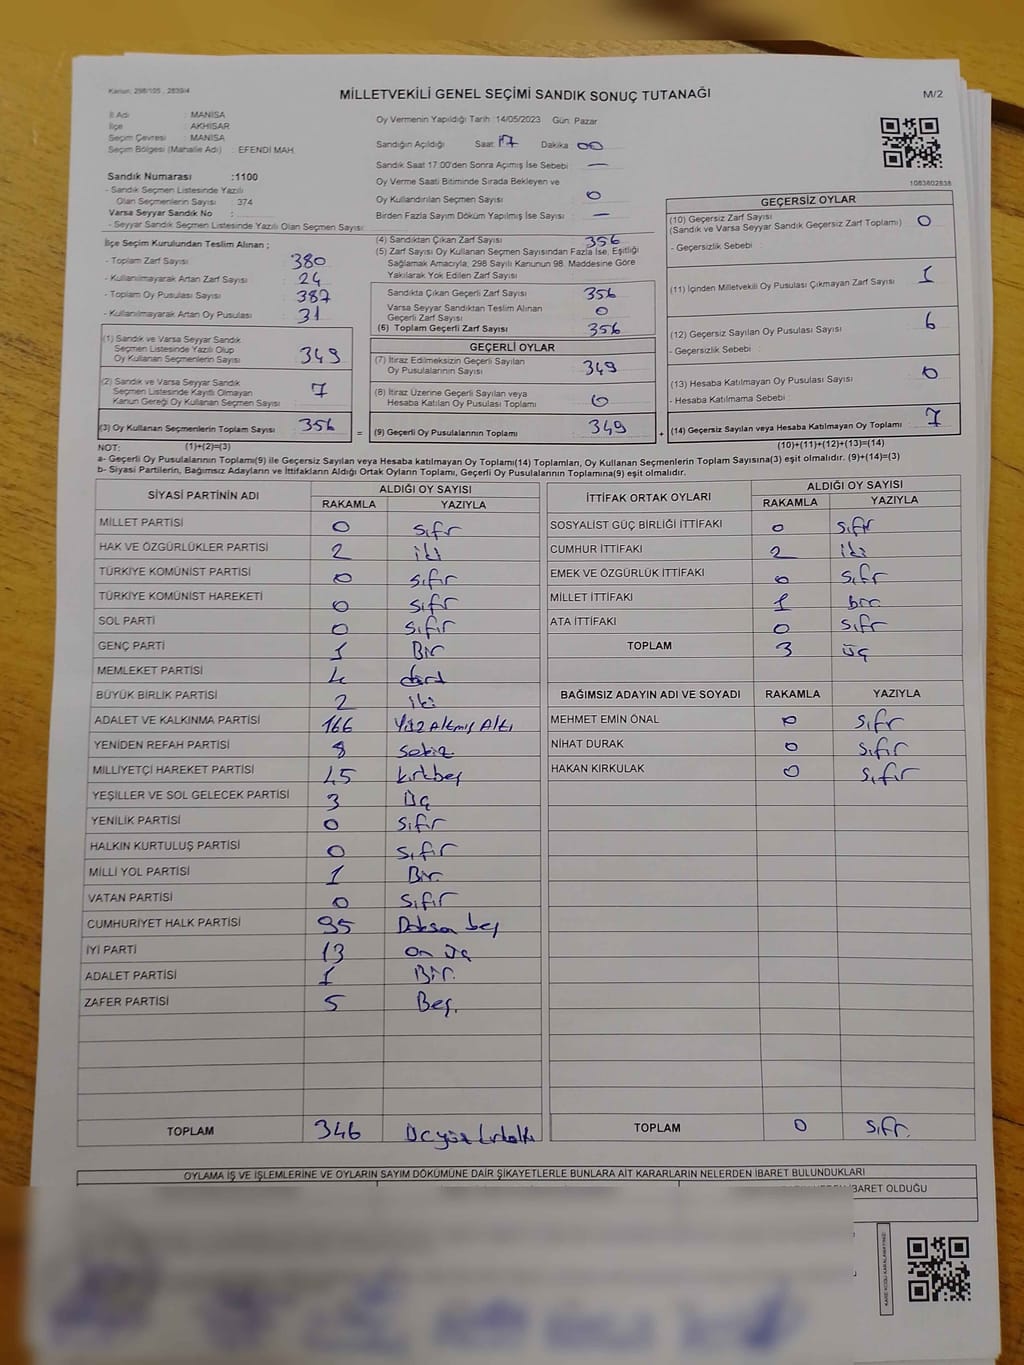 Kanun: 298/105 , 2839/4
MİLLETVEKİLİ GENEL SEÇİMİ SANDIK SONUÇ TUTANAĞI
M/2
İl Adı : MANİSA
İlçe : AKHİSAR
Seçim Çevresi : MANİSA
Seçim Bölgesi (Mahalle Adı) : EFENDİ MAH.
Sandık Numarası :1100
- Sandık Seçmen Listesinde Yazılı
Olan Seçmenlerin Sayısı : 374
Varsa Seyyar Sandık No :
- Seyyar Sandık Seçmen Listesinde Yazılı Olan Seçmen Sayısı :
Oy Vermenin Yapıldığı Tarih :14/05/2023 Gün: Pazar
Sandığın Açıldığı Saat 17 Dakika 00
Sandık Saat 17:00'den Sonra Açımış İse Sebebi —
Oy Verme Saati Bitiminde Sırada Bekleyen ve
Oy Kullandırılan Seçmen Sayısı 0
Birden Fazla Sayım Döküm Yapılmış İse Sayısı —
1083802838
İlçe Seçim Kurulundan Teslim Alınan ;
- Toplam Zarf Sayısı : 380
- Kullanılmayarak Artan Zarf Sayısı : 24
- Toplam Oy Pusulası Sayısı : 387
- Kullanılmayarak Artan Oy Pusulası : 31
(1) Sandık ve Varsa Seyyar Sandık
Seçmen Listesinde Yazılı Olup
Oy Kullanan Seçmenlerin Sayısı : 349
(2) Sandık ve Varsa Seyyar Sandık
Seçmen Listesinde Kayıtlı Olmayan
Kanun Gereği Oy Kullanan Seçmen Sayısı : 7
(3) Oy Kullanan Seçmenlerin Toplam Sayısı : 356
(4) Sandıktan Çıkan Zarf Sayısı : 356
(5) Zarf Sayısı Oy Kullanan Seçmen Sayısından Fazla İse, Eşitliği
Sağlamak Amacıyla, 298 Sayılı Kanunun 98. Maddesine Göre
Yakılarak Yok Edilen Zarf Sayısı
Sandıkta Çıkan Geçerli Zarf Sayısı : 356
Varsa Seyyar Sandıktan Teslim Alınan
Geçerli Zarf Sayısı : 0
(6) Toplam Geçerli Zarf Sayısı : 356
GEÇERLİ OYLAR
(7) İtiraz Edilmeksizin Geçerli Sayılan
Oy Pusulalarının Sayısı : 349
(8) İtiraz Üzerine Geçerli Sayılan veya
Hesaba Katılan Oy Pusulası Toplamı : 0
= (9) Geçerli Oy Pusulalarının Toplamı : 349
GEÇERSİZ OYLAR
(10) Geçersiz Zarf Sayısı
(Sandık ve Varsa Seyyar Sandık Geçersiz Zarf Toplamı) : 0
- Geçersizlik Sebebi :
(11) İçinden Milletvekili Oy Pusulası Çıkmayan Zarf Sayısı : 1
(12) Geçersiz Sayılan Oy Pusulası Sayısı : 6
- Geçersizlik Sebebi :
(13) Hesaba Katılmayan Oy Pusulası Sayısı : 0
- Hesaba Katılmama Sebebi :
+ (14) Geçersiz Sayılan veya Hesaba Katılmayan Oy Toplamı : 7
NOT: (1)+(2)=(3)
(10)+(11)+(12)+(13)=(14)
a- Geçerli Oy Pusulalarının Toplamı(9) ile Geçersiz Sayılan veya Hesaba katılmayan Oy Toplamı(14) Toplamları, Oy Kullanan Seçmenlerin Toplam Sayısına(3) eşit olmalıdır. (9)+(14)=(3)
b- Siyasi Partilerin, Bağımsız Adayların ve İttifakların Aldığı Ortak Oyların Toplamı, Geçerli Oy Pusulalarının Toplamına(9) eşit olmalıdır.
SİYASİ PARTİNİN ADI
ALDIĞI OY SAYISI
RAKAMLA YAZIYLA
MİLLET PARTİSİ 0 sıfır
HAK VE ÖZGÜRLÜKLER PARTİSİ 2 iki
TÜRKİYE KOMÜNİST PARTİSİ 0 sıfır
TÜRKİYE KOMÜNİST HAREKETİ 0 sıfır
SOL PARTİ 0 sıfır
GENÇ PARTİ 1 Bir
MEMLEKET PARTİSİ 4 dört
BÜYÜK BİRLİK PARTİSİ 2 iki
ADALET VE KALKINMA PARTİSİ 166 Yüz Altmış Altı
YENİDEN REFAH PARTİSİ 8 sekiz
MİLLİYETÇİ HAREKET PARTİSİ 45 kırkbeş
YEŞİLLER VE SOL GELECEK PARTİSİ 3 Üç
YENİLİK PARTİSİ 0 sıfır
HALKIN KURTULUŞ PARTİSİ 0 sıfır
MİLLİ YOL PARTİSİ 1 Bir
VATAN PARTİSİ 0 sıfır
CUMHURİYET HALK PARTİSİ 95 Doksan beş
İYİ PARTİ 13 on üç
ADALET PARTİSİ 1 Bir.
ZAFER PARTİSİ 5 Beş.
TOPLAM 346 Üçyüz kırkaltı
İTTİFAK ORTAK OYLARI
ALDIĞI OY SAYISI
RAKAMLA YAZIYLA
SOSYALİST GÜÇ BİRLİĞİ İTTİFAKI 0 sıfır
CUMHUR İTTİFAKI 2 iki
EMEK VE ÖZGÜRLÜK İTTİFAKI 0 sıfır
MİLLET İTTİFAKI 1 bir
ATA İTTİFAKI 0 sıfır
TOPLAM 3 üç
BAĞIMSIZ ADAYIN ADI VE SOYADI RAKAMLA YAZIYLA
MEHMET EMİN ÖNAL 0 sıfır
NİHAT DURAK 0 sıfır
HAKAN KIRKULAK 0 sıfır
TOPLAM 0 sıfır.
OYLAMA İŞ VE İŞLEMLERİNE VE OYLARIN SAYIM DÖKÜMÜNE DAİR ŞİKAYETLERLE BUNLARA AİT KARARLARIN NELERDEN İBARET BULUNDUKLARI
İBARET OLDUĞU